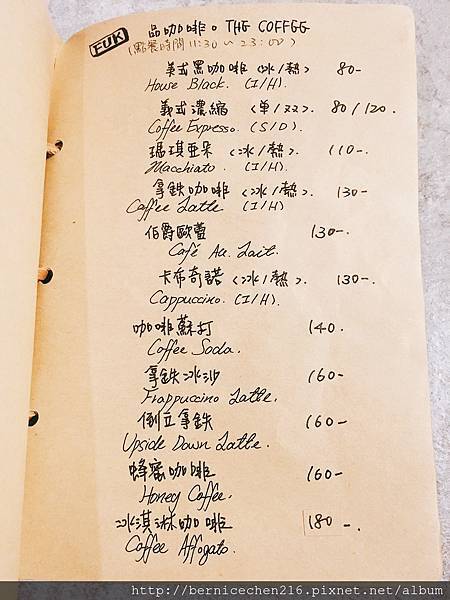 FUK
品咖啡。THE COFFEE
(點餐時間 11:30 ~ 23:00)
美式黑咖啡 <冰/熱>. 80-
House Black. (I/H).
義式濃縮 <单/双>. 80/120.
Coffee Expresso. (S/D).
瑪琪亞朵 <冰/熱>. 110-.
Macchiato. (I/H).
拿鉄咖啡 <冰/熱>. 130-
Coffee Latte (I/H)
伯爵歐蕾 130-.
Café Au Lait.
卡布奇諾 <冰/熱>. 130-.
Cappuccino. (I/H).
咖啡蘇打 140.
Coffee Soda.
拿鉄冰沙 160-
Frappuccino Latte.
倒立拿鉄 160-
Upside Down Latte.
蜂蜜咖啡 160-
Honey Coffee.
冰淇淋咖啡 180-.
Coffee Affogato.
http://bernicechen216.pixnet.net/album